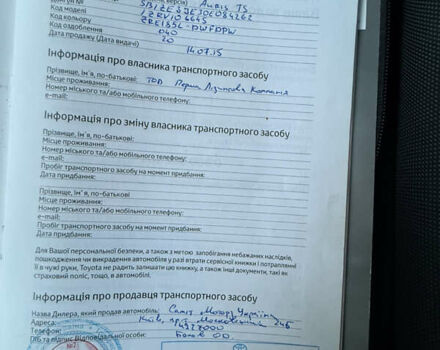 Auris TS
Код моделі
Код кольору
Код оздоблення 040
Дата продажу (Дата видачі) 20
14.07.15
Інформація про власника транспортного засобу
Прізвище, ім'я, по-батькові: ТОВ Перша Лізингова Компанія
Місце проживання:
Номер міського та/або мобільного телефону:
e-mail:
Інформація про зміну власника транспортного засобу
Прізвище, ім'я, по-батькові:
Місце проживання:
Номер міського та/або мобільного телефону:
e-mail:
Пробіг транспортного засобу на момент придбання:
Дата придбання:
Прізвище, ім'я, по-батькові
Місце проживання:
Номер міського та/або мобільного телефону:
e-mail:
Пробіг транспортного засобу на момент придбання:
Дата придбання:
Для Вашої персональної безпеки, а також з метою запобігання небажаних наслідків,
пошкодження чи викрадення автомобіля у разі втрати сервісної книжки і потраплянні
її в чужі руки, Toyota не радить залишати цю книжку, а також інші документи, такі як
страховий поліс, тощо, в автомобілі.
Інформація про продавця транспортного засобу
Назва Дилера, який продав автомобіль: Саміт Моторз Україна
Адреса: Київ, пр-т Московський 24Б
Телефон:
ПІБ та підпис відповідальної особи: